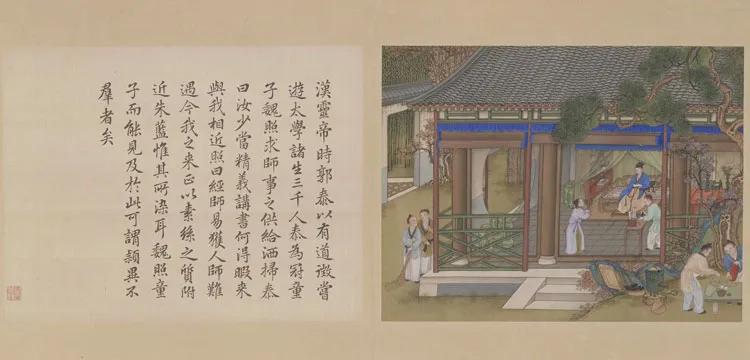 漢靈帝時郭泰以有道徵嘗
遊太學諸生三千人泰為冠童
子魏照求師事之供給洒掃泰
曰汝少當精義講書何得暇來
與我相近照曰經師易獲人師難
遇今我之來正以素絲之質附
近朱藍惟其所染耳魏照童
子而能見及於此可謂穎異不
羣者矣